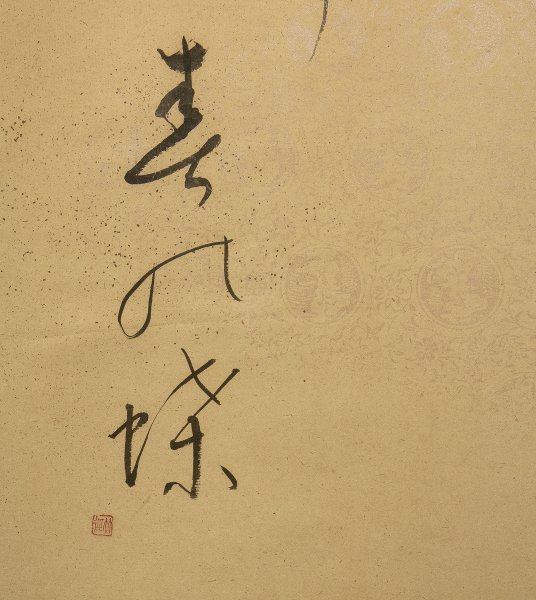 春の蝶